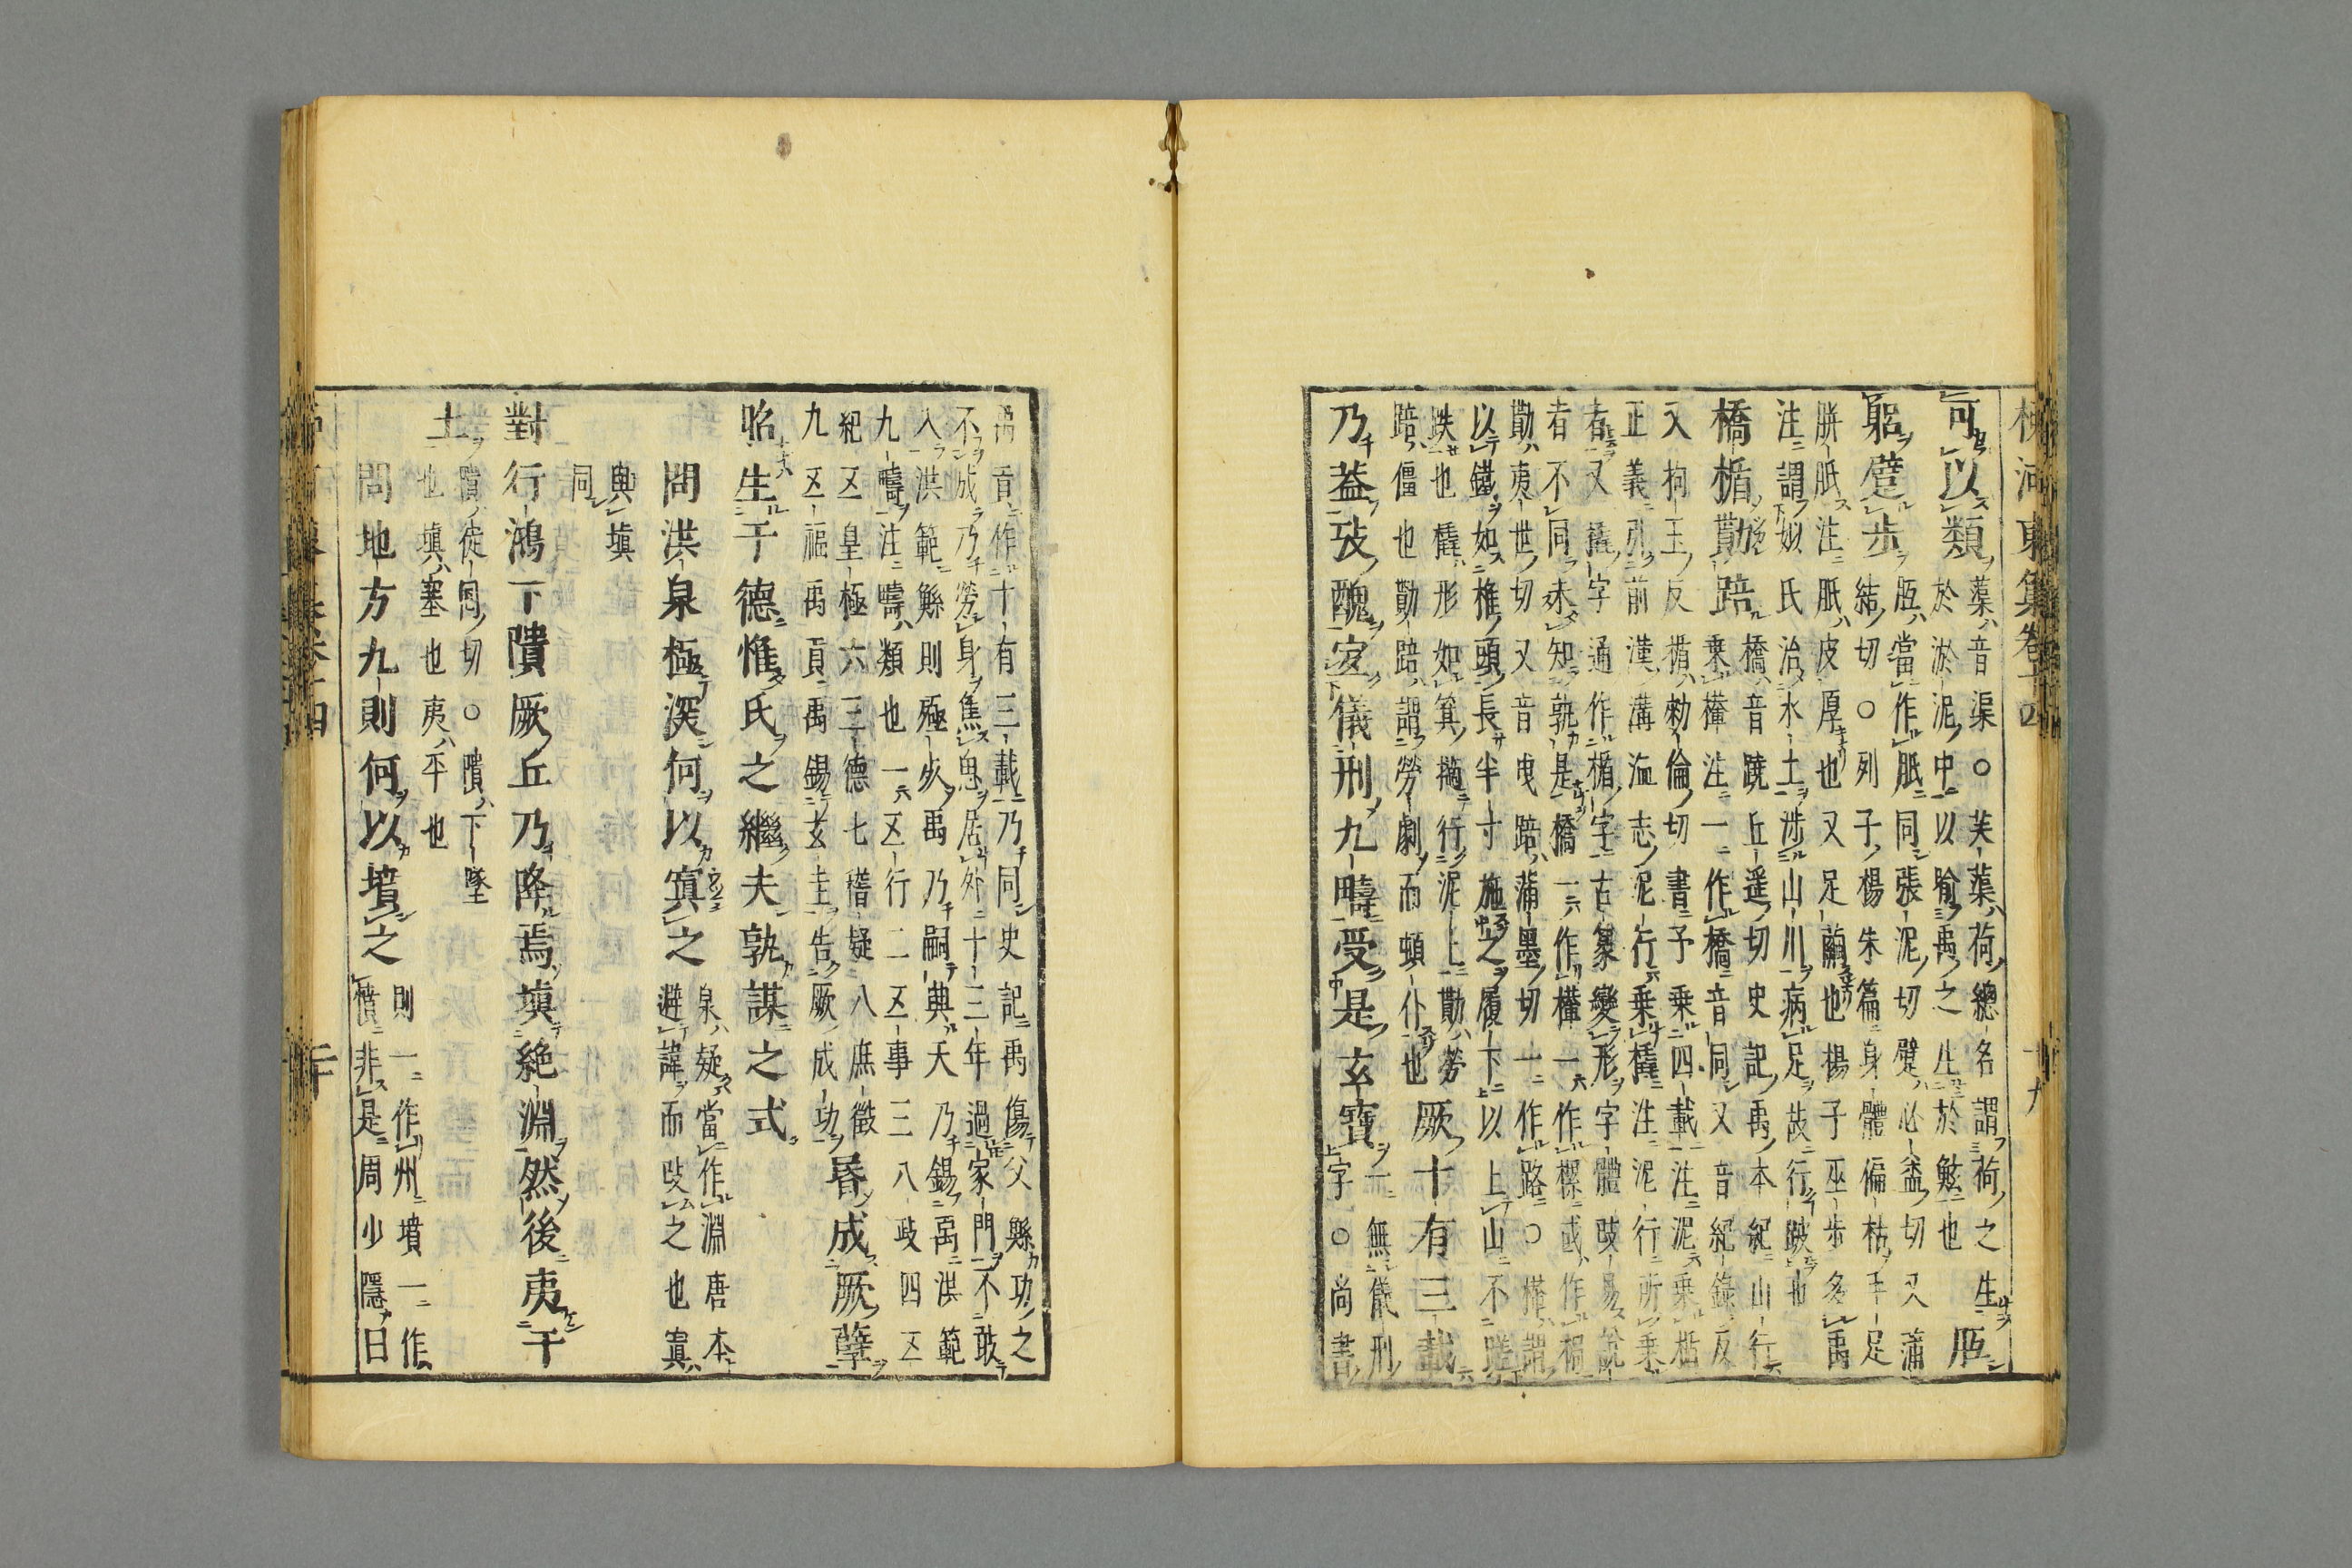 柳河東集卷十四 十九
可以類
蕖音渠○芙蕖荷總名謂荷之生
於淤泥中以喻禹之生於鮌也
胝
躬躄步
胝當作胝同張泥切躄必益切又蒲
結切○列子楊朱篇身體偏枯手足
胼胝注胝皮厚也又足繭也楊子巫步多禹
注謂姒氏治水土涉山川病足故行跛也
橋楯勩踣
橋音蹺丘遥切史記禹本紀山行
乗檋注一作橋音同又音紀録反
又拘玉反楯勑倫切書予乗四載注泥乗楯
正義引前漢溝洫志泥行乗橇注泥行所乗
者又橇字通作楯字古篆變形字體攺易說
者不同未知孰是橋一作檋一作樏或作梮
勩夷世切又音曳踣蒲墨切一作路○檋謂
以鐵如椎頭長半寸施之履下以上山不蹉
跌也橇形如箕擿行泥上勩勞
踣僵也勩踣謂勞劇而頓仆也
厥十有三載
乃葢攷醜宐儀刑九疇受是玄寶
一無儀刑
字○尚書
禹貢作十有三載乃同史記禹傷父鯀功之
不成乃勞身焦思居外十三年過家門不敢
入洪範鯀則殛歿禹乃嗣典天乃錫禹洪範
九疇注疇類也一五行二五事三八政四五
紀五皇極六三德七稽疑八庶徵
九五福禹貢禹錫玄圭告厥成功
昬成厥孽
昭生于德惟氏之繼夫孰謀之式
問洪泉極深何以窴之
泉疑當作淵唐本
避諱而攺之也窴
與填
同
對行鴻下隤厥丘乃降焉填絶淵然後夷于
土
隤徒回切○隤下墜
也填塞也夷平也
問地方九則何以墳之
則一作州墳一作
憤非是周少隱曰